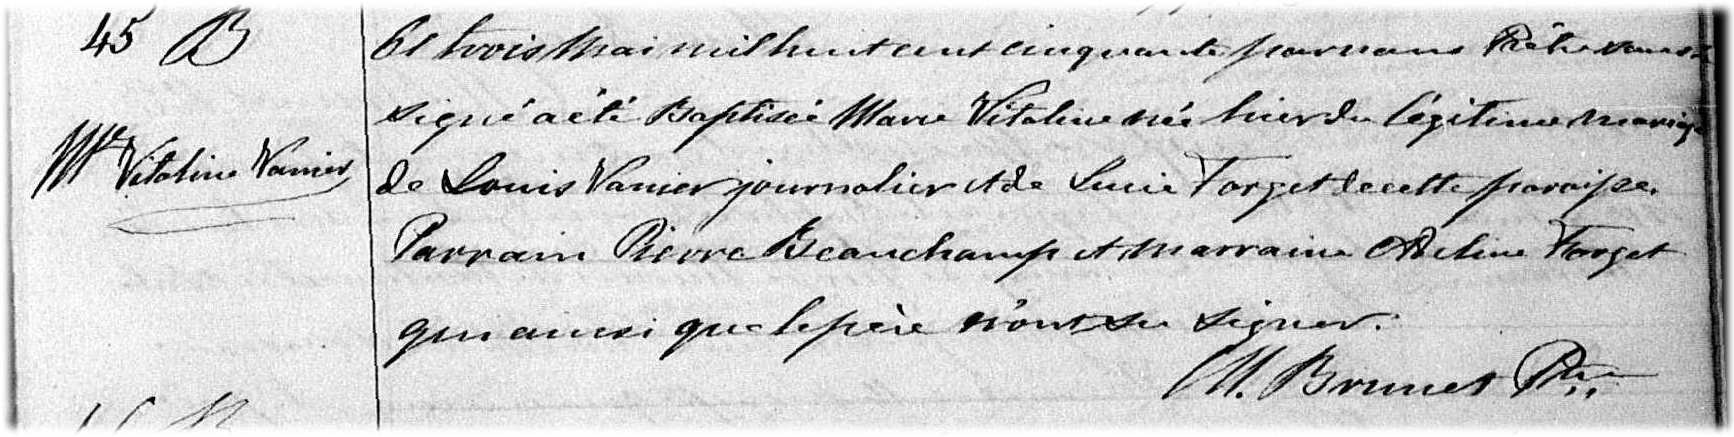 45 B
Mie Vitaline Vanier
Le trois Mai mil huit cent cinquante par nous Prêtre sous-
signé a été Baptisée Marie Vitaline née hier du légitime mariage
de Louis Vanier journalier et de Lucie Forget de cette paroisse.
Parrain Pierre Beauchamp et marraine Adeline Forget
qui ainsi que le père n'ont su signer.
M. Brunet Ptre